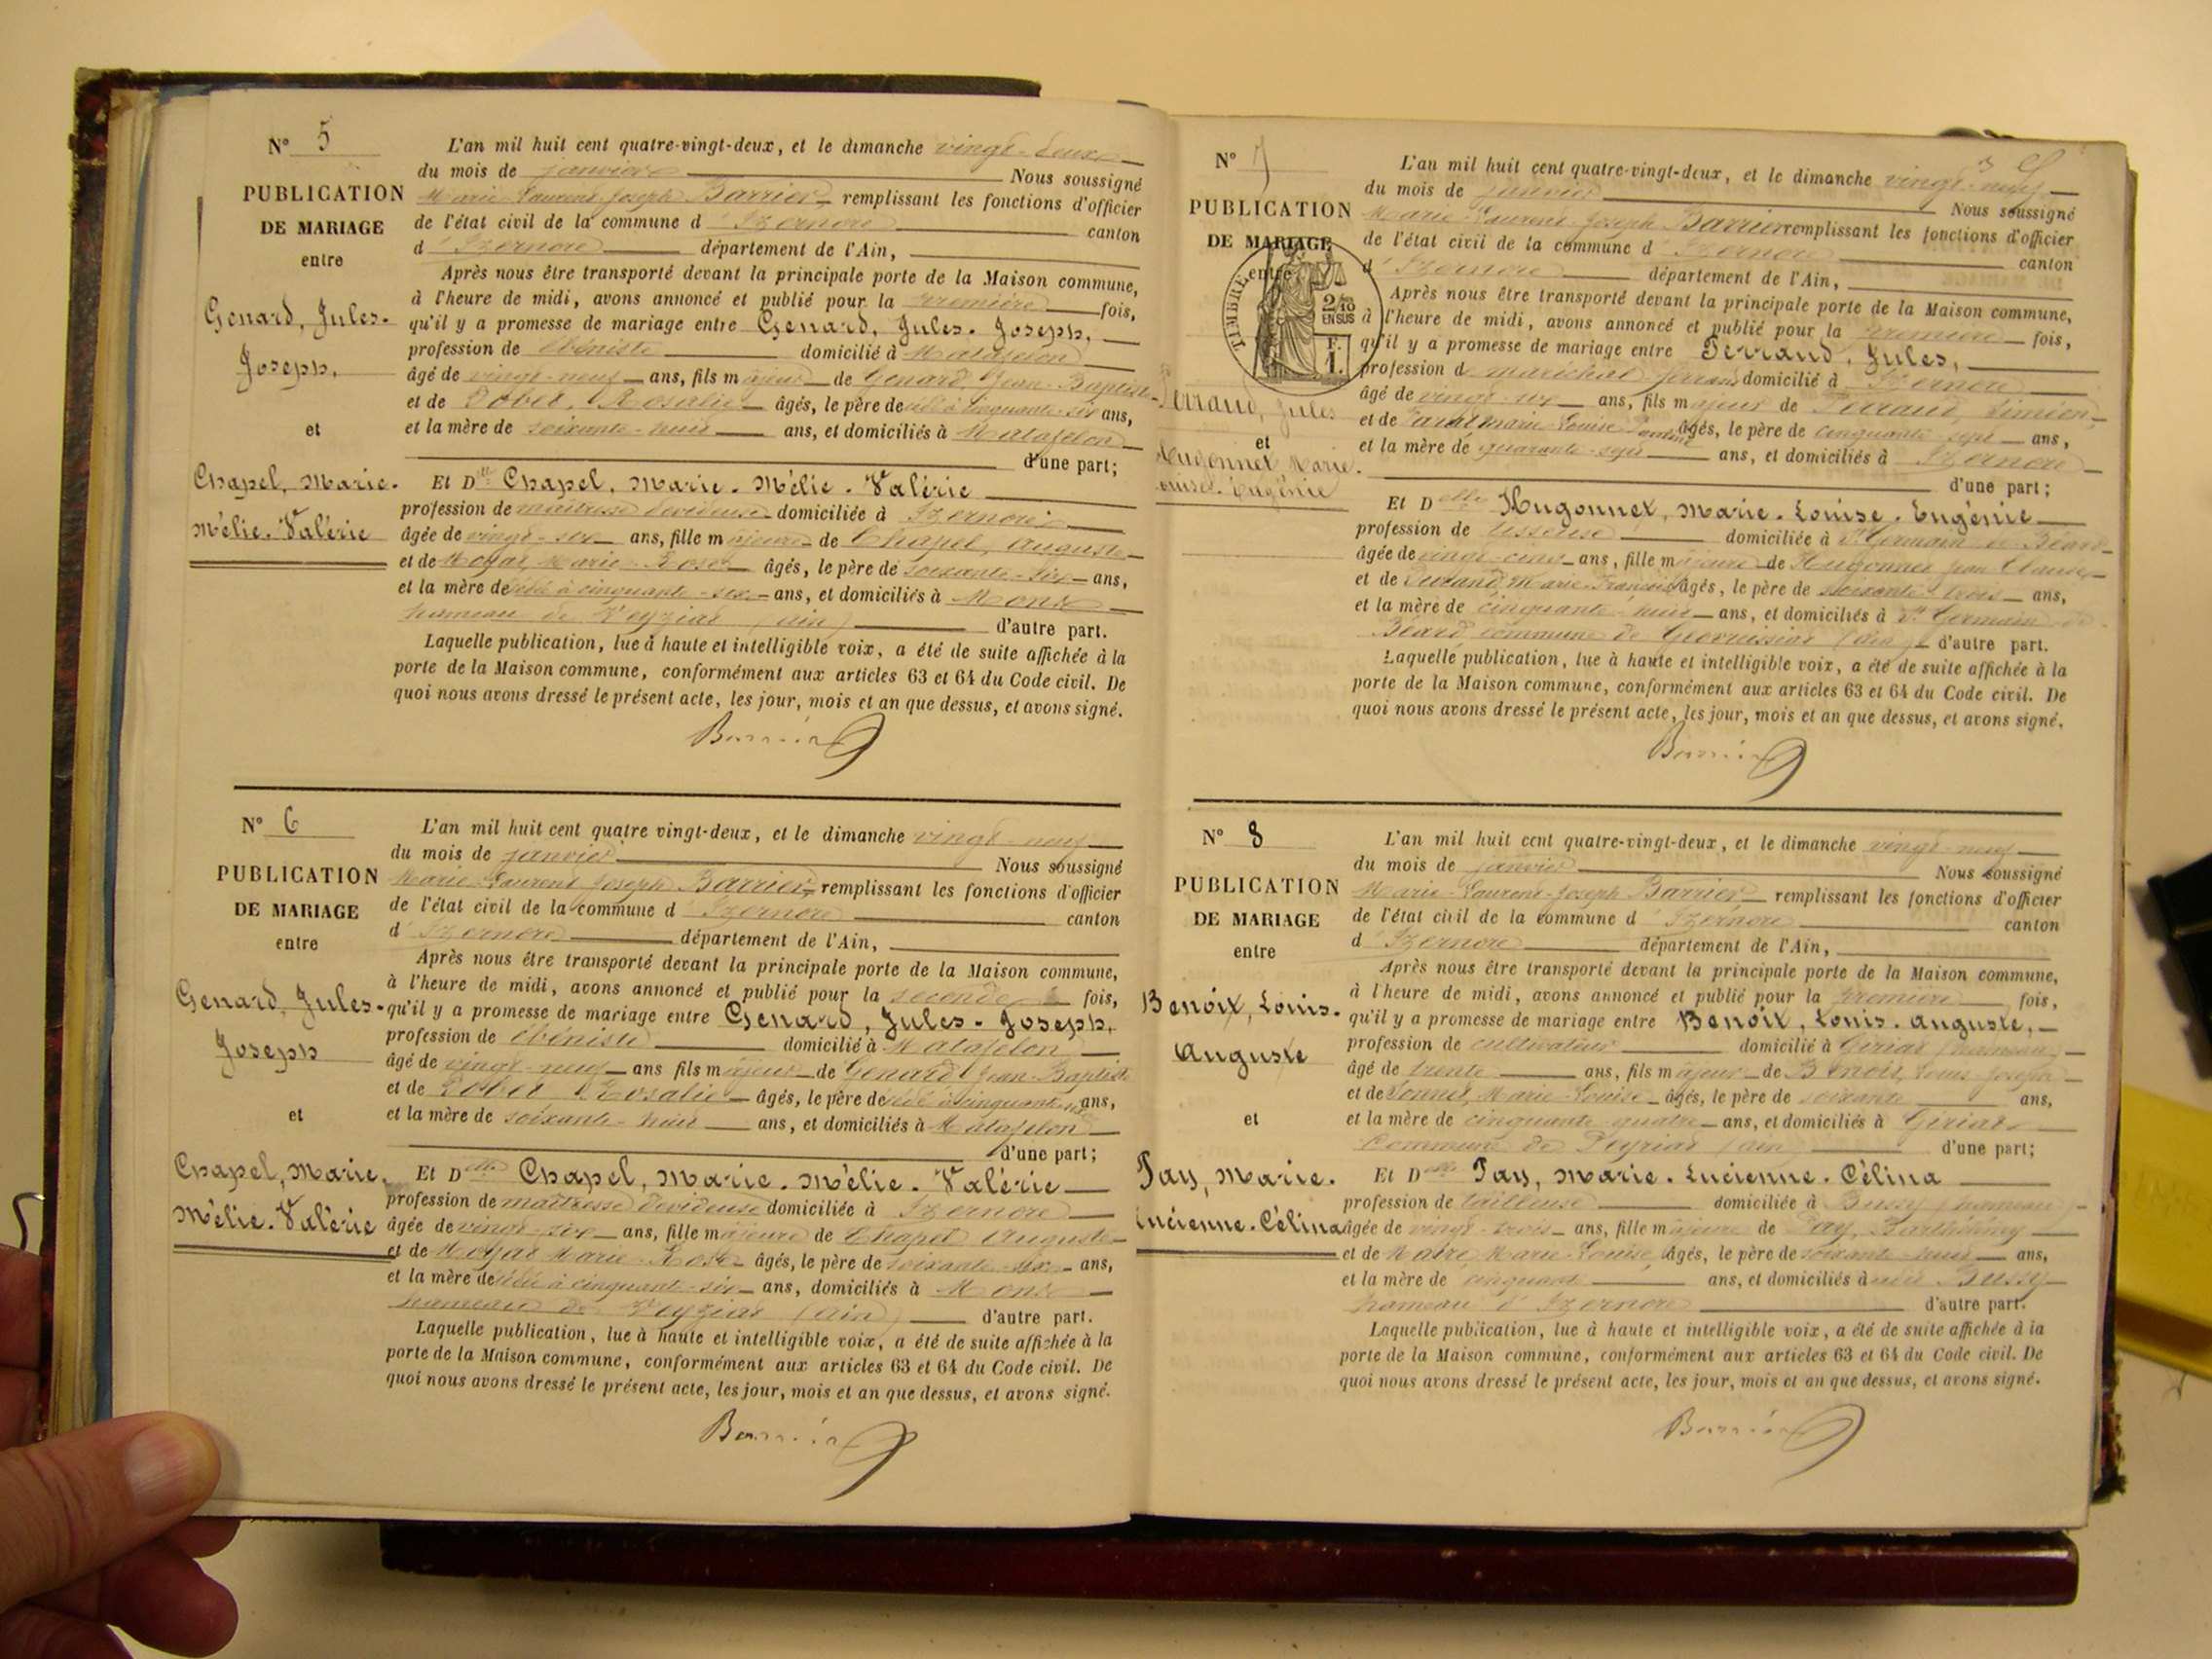 N° 5
PUBLICATION
DE MARIAGE
entre
Genard, Jules-
Joseph,
et
Chapel, Marie-
Mélie-Valérie
L'an mil huit cent quatre-vingt-deux, et le dimanche vingt-deux
du mois de janvier Nous soussigné
Marie-Laurent-Joseph Barrier remplissant les fonctions d'officier
de l'état civil de la commune d'Izernore canton
d'Izernore département de l'Ain,
Après nous être transporté devant la principale porte de la Maison commune,
à l'heure de midi, avons annoncé et publié pour la première fois,
qu'il y a promesse de mariage entre Genard, Jules-Joseph,
profession de ébéniste domicilié à Matafelon
âgé de vingt-neuf ans, fils majeur de Genard, Jean-Baptiste
et de Robet, Rosalie âgés, le père de décédé à cinquante-six ans,
et la mère de soixante-huit ans, et domiciliés à Matafelon
d'une part;
Et Dlle Chapel, Marie-Mélie-Valérie
profession de maîtresse dévideuse domiciliée à Izernore
âgée de vingt-six ans, fille majeure de Chapel, Auguste
et de Moyat Marie-Rose âgés, le père de soixante-six ans,
et la mère de cinquante-six ans, et domiciliés à
hameau de Veyziat (Ain) d'autre part.
Laquelle publication, lue à haute et intelligible voix, a été de suite affichée à la
porte de la Maison commune, conformément aux articles 63 et 64 du Code civil. De
quoi nous avons dressé le présent acte, les jour, mois et an que dessus, et avons signé.
Barrier
N° 6
PUBLICATION
DE MARIAGE
entre
Genard, Jules-
Joseph
et
Chapel, Marie-
Mélie-Valérie
L'an mil huit cent quatre vingt-deux, et le dimanche vingt-neuf
du mois de janvier Nous soussigné
Marie-Laurent-Joseph Barrier, remplissant les fonctions d'officier
de l'état civil de la commune d'Izernore canton
d'Izernore département de l'Ain,
Après nous être transporté devant la principale porte de la Maison commune,
à l'heure de midi, avons annoncé et publié pour la seconde fois,
qu'il y a promesse de mariage entre Genard, Jules-Joseph,
profession de ébéniste domicilié à Matafelon
âgé de vingt-neuf ans fils majeur de Genard Jean-Baptiste
et de Robet Rosalie âgés, le père de cinquante-six ans,
et la mère de soixante-huit ans, et domiciliés à Matafelon
d'une part;
Et Dlle Chapel, Marie-Mélie-Valérie
profession de maîtresse dévideuse domiciliée à Izernore
âgée de vingt-six ans, fille majeure de Chapel Auguste
et de Moyat Marie-Rose âgés, le père de soixante-six ans,
et la mère de cinquante-six ans, domiciliés à
hameau de Veyziat (Ain) d'autre part.
Laquelle publication, lue à haute et intelligible voix, a été de suite affichée à la
porte de la Maison commune, conformément aux articles 63 et 64 du Code civil. De
quoi nous avons dressé le présent acte, les jour, mois et an que dessus, et avons signé.
Barrier
N° 7
PUBLICATION
DE MARIAGE
entre
TIMBRE
2/10
EN SUS
F.
1.
Perraud, Jules
et
Hugonnet Marie-
Louise-Eugénie
L'an mil huit cent quatre-vingt-deux, et le dimanche vingt-neuf
du mois de janvier Nous soussigné
Marie-Laurent-Joseph Barrier remplissant les fonctions d'officier
de l'état civil de la commune d'Izernore canton
d'Izernore département de l'Ain,
Après nous être transporté devant la principale porte de la Maison commune,
à l'heure de midi, avons annoncé et publié pour la première fois,
qu'il y a promesse de mariage entre Perraud, Jules,
profession de maréchal-ferrant domicilié à Izernore
âgé de vingt-six ans, fils majeur de Perraud, Siméon,
et de Marie-Louise âgés, le père de cinquante-sept ans,
et la mère de quarante-sept ans, et domiciliés à Izernore
d'une part;
Et Dlle Hugonnet, Marie-Louise-Eugénie
profession de tisseuse domiciliée à St Germain de Béard
âgée de vingt-cinq ans, fille majeure de Hugonnet Jean-Claude
et de Durand, Marie-Françoise âgés, le père de soixante-trois ans,
et la mère de cinquante-huit ans, et domiciliés à St Germain de
Béard commune de Géovreissiat (Ain) d'autre part.
Laquelle publication, lue à haute et intelligible voix, a été de suite affichée à la
porte de la Maison commune, conformément aux articles 63 et 64 du Code civil. De
quoi nous avons dressé le présent acte, les jour, mois et an que dessus, et avons signé.
Barrier
N° 8
PUBLICATION
DE MARIAGE
entre
Benoit, Louis-
Auguste
et
Pay, Marie-
Lucienne-Célina
L'an mil huit cent quatre-vingt-deux, et le dimanche vingt-neuf
du mois de janvier Nous soussigné
Marie-Laurent-Joseph Barrier remplissant les fonctions d'officier
de l'état civil de la commune d'Izernore canton
d'Izernore département de l'Ain,
Après nous être transporté devant la principale porte de la Maison commune,
à l'heure de midi, avons annoncé et publié pour la première fois,
qu'il y a promesse de mariage entre Benoit, Louis-Auguste,
profession de cultivateur domicilié à Giriat, hameau
âgé de trente ans, fils majeur de Benoit, Louis-Joseph
et de Sonnet, Marie-Louise âgés, le père de soixante ans,
et la mère de cinquante-quatre ans, et domiciliés à Giriat
commune de Peyriat (Ain) d'une part;
Et Dlle Pay, Marie-Lucienne-Célina
profession de tailleuse domiciliée à Bussy, hameau
âgée de vingt-trois ans, fille majeure de Pay, Barthélemy
et de Maire, Marie-Louise, âgés, le père de soixante- ans,
et la mère de cinquante ans, et domiciliés à Bussy
hameau d'Izernore d'autre part.
Laquelle publication, lue à haute et intelligible voix, a été de suite affichée à la
porte de la Maison commune, conformément aux articles 63 et 64 du Code civil. De
quoi nous avons dressé le présent acte, les jour, mois et an que dessus, et avons signé.
Barrier